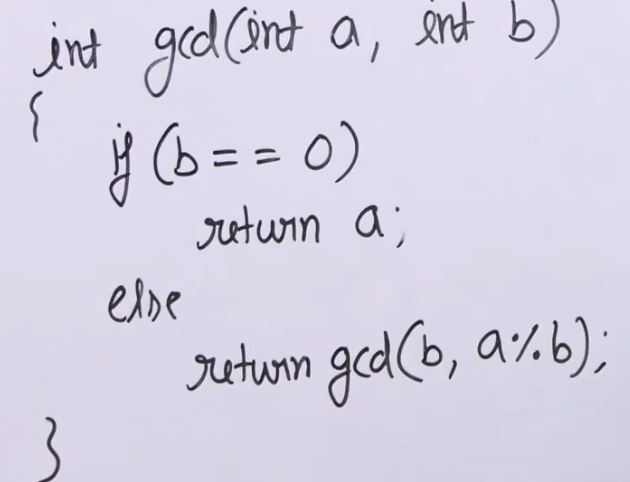 int gcd(int a, int b)
{
if (b == 0)
return a;
else
return gcd(b, a%b);
}